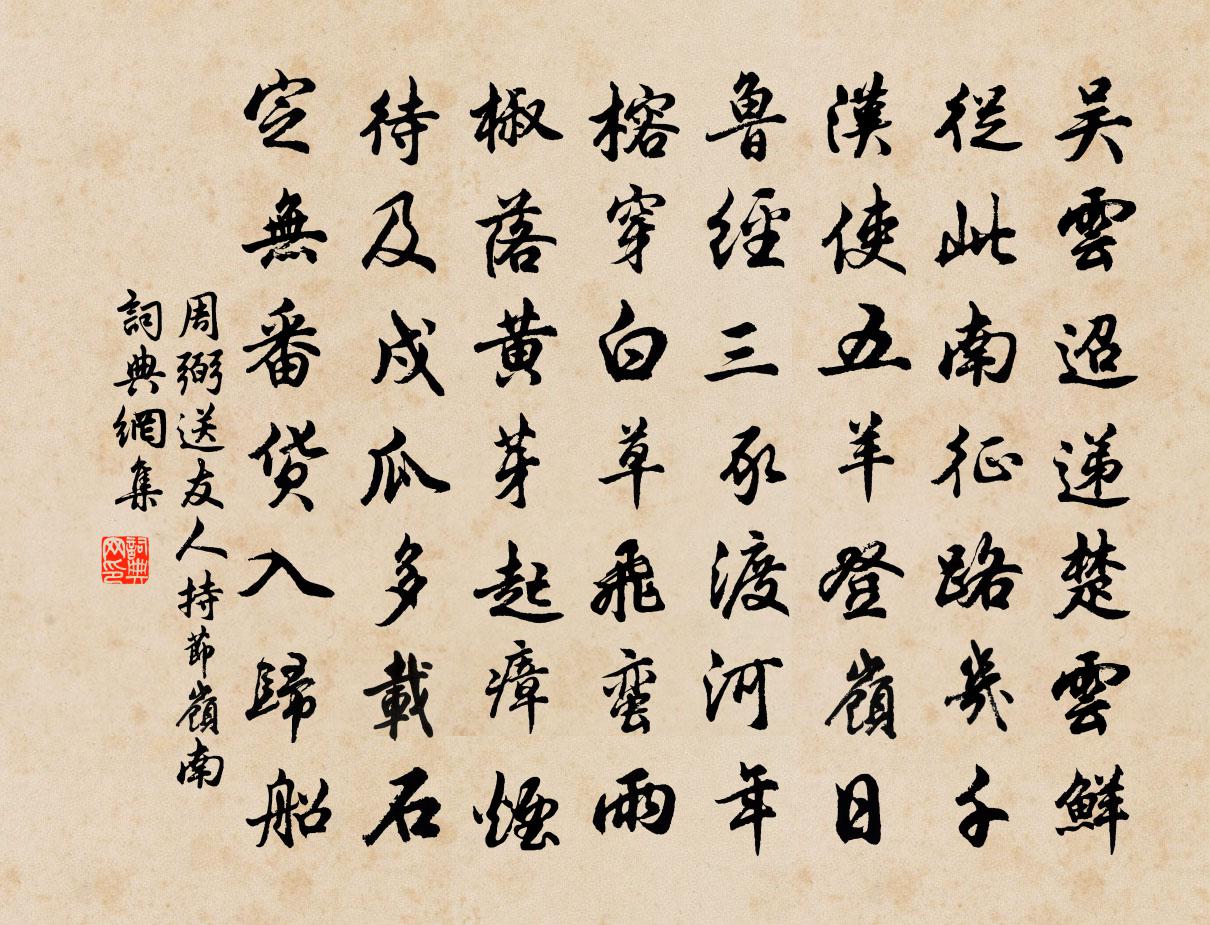 吴雲迢递楚雲鮮
從此南征路幾千
漢使五羊登嶺日
魯經三豕渡河年
榕穿白草飛蠻雨
椒落黄芽起瘴煙
待及戍瓜多載石
定無番貨入歸船
周弼送友人持節嶺南
詞典網集
詞典网印